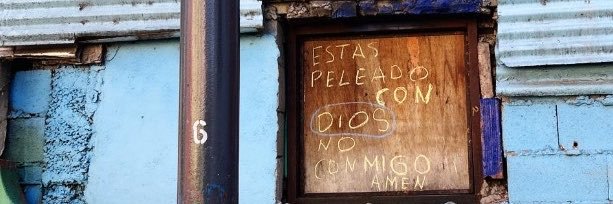 6
ESTAS
PELEADO
CON
DIOS
NO
CONMIGO
AMEN